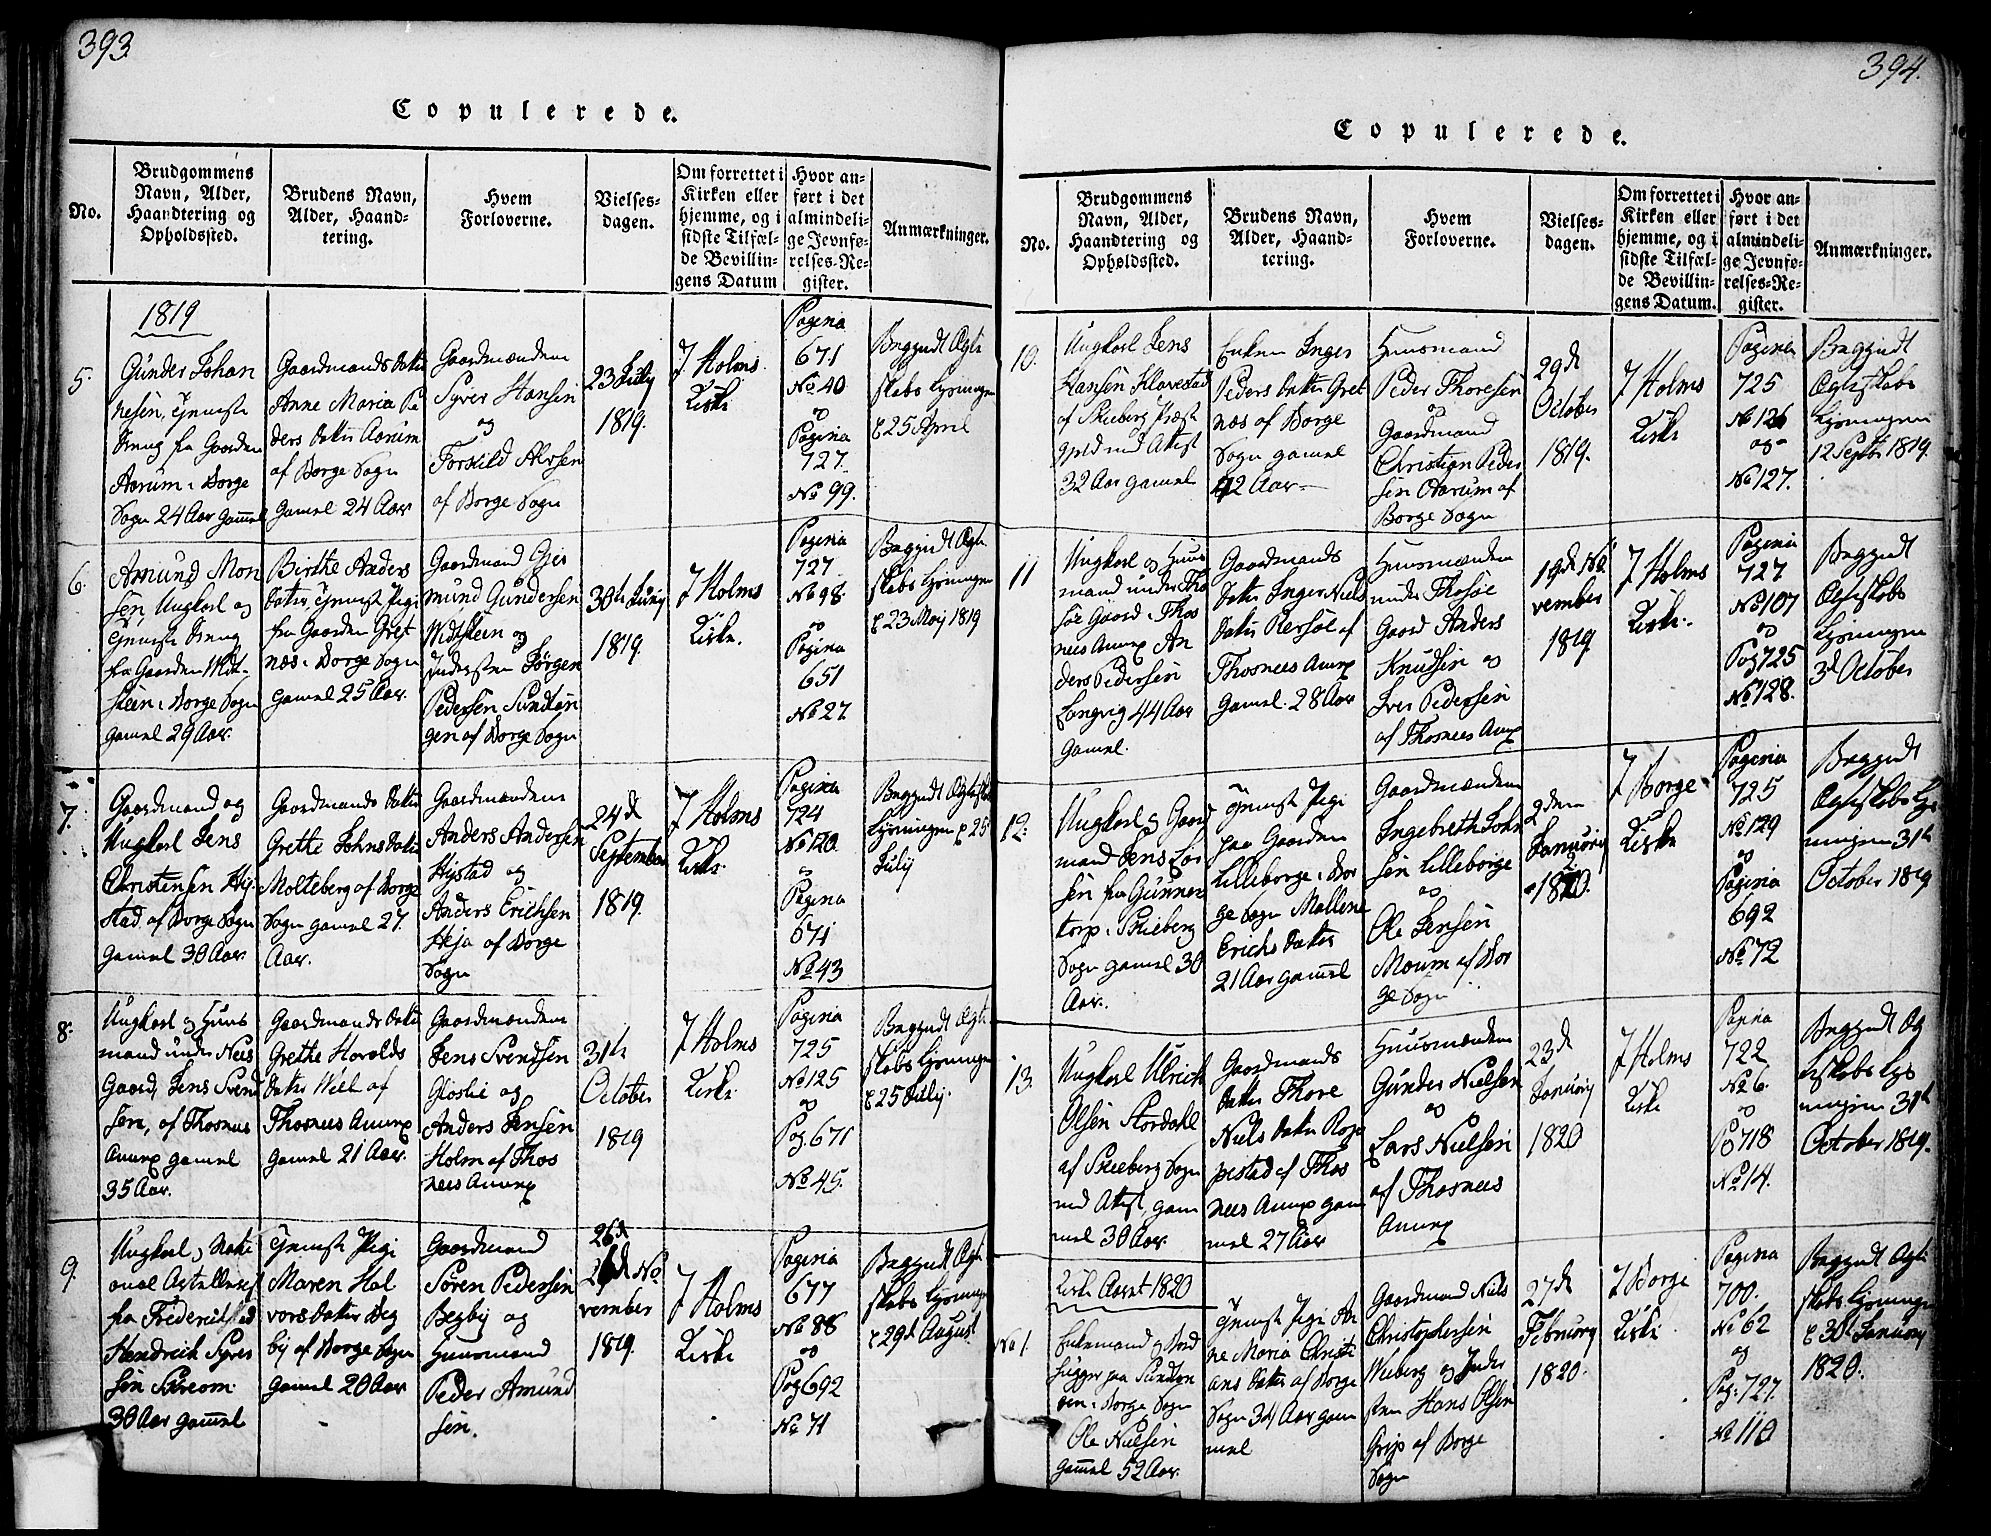 393
Copulerede.
No.
Brudgommens
Navn, Alder,
Haandtering og
Opholdssted.
Brudens Navn,
Alder, Haand-
tering.
Hvem
Forloverne.
Vielses-
dagen.
Om forrettet i
Kirken eller
hjemme, og i
sidste Tilfæl-
de Bevillin-
gens Datum
Hvor an-
ført i det
almindeli-
ge Jevnfø-
relses-Re-
gister.
Anmærkninger.
1819
5.
Gunder Johan
nesen, Tjeneste
Dreng fra Gaarden
Aarum i Borge
Sogn 24 Aar Gammel
Gaardmands Datter
Anne Maria Pe
ders Datter Aarum
af Borge Sogn
Gamel 24 Aar
Gaardmændene
Syver Hansen
og
Torkild Alvsen
af Borge Sogn
23 July
1819.
I Holms
Kirke
Pagina
671
No 40
og
Pagina
727.
No 99.
Begyndt Ægte
skabs Lysningen
25 April
6.
Amund Mon
sen Ungkarl og
Tjeneste Dreng
fra Gaarden Vidt-
steen i Borge Sogn
Gamel 29 Aar.
Birthe Anders
Datter Tjeneste Pige
fra Gaarden Gret
næs i Borge Sogn
gamel 25 Aar.
Gaardmand Gjer
mund Gundersen
Widtsteen og
Indersten Jørgen
Pedersen Sundløn
gen af Borge Sogn
30th July
1819.
I Holms
Kirke.
Pagina
727
No 98.
og
Pagina
651
No 27
Begyndt Ægte
skabs Lysningen
23 Maj 1819
7.
Gaardmand og
Ungkarl Jens
Christensen Hy-
stad af Borge Sogn
Gamel 30 Aar
Gaardmands Datter
Grethe Johns Datter
Molteberg af Borge
Sogn gamel 27.
Aar.
Gaardmændene
Anders Andersen
Hystad og
Anders Erichsen
Heja af Borge
Sogn
24de
September
1819.
I Holms
Kirke
Pagina
724
No 120.
og
Pagina
671
No 43
Begyndt Ægteskabs
Lysningen 25
July
8.
Ungkarl og Huus
mand under Nees
Gaard, Jens Svend
sen, af Thosnæs
Annex gamel
35 Aar.
Gaardmands Datter
Grethe Harolds
Datter Weel af
Thosnees Annex
gamel 21 Aar.
Gaardmændene
Jens Svendsen
Glostie og
Anders Jensen
Holm af Thos
nees Annex
31te
October
1819
I Holms
Kirke
Pagina
725
No 125
og
Pag. 671
No 45.
Begyndt Ægte
skabs Lysningen
25 July.
9.
Ungkarl, og Nati
onal Artellerist
fra Friderichstad
Hendrich Syver
sen Skeom
30 Aar gammel
Tjeneste Pige
Maren Hal
vors Datter Beg
by af Borge Sogn
gamel 20 Aar
Gaardmand
Søren Pedersen
Begby og
Huusmand
Peder Amund
sen.
26de
26de No
vember
1819.
I Holms
Kirke
Pagina
677
No 88
og
Pag 692
No 71
Begyndt Ægte
skabs Lysningen
29de August
394.
Copulerede.
No.
Brudgommens
Navn, Alder,
Haandtering og
Opholdssted.
Brudens Navn,
Alder, Haand-
tering.
Hvem
Forloverne.
Vielses-
dagen.
Om forrettet i
Kirken eller
hjemme, og i
sidste Tilfæl-
de Bevillin-
gens Datum.
Hvor an-
ført i det
almindeli-
ge Jevnfø-
relses-Re-
gister.
Anmærkninger.
10.
Ungkarl Jens
Hansen Klavestad
af Skieberg Præste
gield med Attest
32 Aar gamel
Enken Inger
Peders Datter Gret
næs af Borge
Sogn gamel
42 Aar
Huusmand
Peder Thoresen
og
Gaardmand
Christian Peder
sen Aarum af
Borge Sogn
29de
October
1819.
I Holms
Kirke
Pagina
725
No 126
og
No 127.
Begyndt
Ægteskabs
Lysningen
12 Septbr 1819.
11
Ungkarl og Huus
mand under Tho
søe Gaard i Thos
nees Annex An
ders Pedersen
Langvig 44 Aar
gamel.
Gaardmands
Datter Inger Niels
Datter Rersøl af
Thosnees Annex
gamel. 28 Aar
Huusmændene
under Thosøe
Gaard Anders
Knudsen og
Iver Pedersen
af Thosnees Annex
19de No
vember
1819
I Holms
Kirke.
Pagina
727
No 107
og
Pag 725
No 128.
Begyndt
Ægteskabs
Lysningen
3de October
12.
Ungkarl og Gaard
mand Jens Lar
sen fra Gunners
torp i Skieberg
Sogn gamel 30
Aar.
Tjeneste Pige
paa Gaarden
Lilleborge i Bor
ge Sogn Mallene
Erichs Datter
21 Aar gammel
Gaardmændene
Ingebreth John
sen Lilleborge
og
Ole Jensen
Moum af Bor
ge Sogn
2den
Januarij
1820.
I Borge
Kirke
Pagina
725
No 129
og
Pagina
692
No 72
Begyndt
Ægteskabs Lys
ningen 31te
October 1819
13.
Ungkarl Ulrich
Olsen Stordahl
af Skieberg Sogn
med Attest, gam
mel 30 Aar.
Gaardmands
Datter Thore
Niels Datter Rop
pestad af Thos
nees Annex gam
mel 27 Aar
Huusmændene
Gunder Nielsen
og
Lars Nielsen
af Thosnees
Annex
23de
Januarij
1820
I Holms
Kirke
Pagina
722
No 6.
og
Pag 718
No 14.
Begyndt Æg
teskabs Lys
ningen 31te
October 1819.
Kirke Aaret 1820
No 1.
Enkemand og Bord
hugger paa Sundløn
gen i Borge Sogn
Ole Nielsen
gammel 52 Aar.
Tjeneste Pige An
ne Maria Christi
ans Datter af Borge
Sogn 34 Aar gam
mel
Gaardmand Niels
Christophersen
Wieberg og Inder
sten Hans Olsen
Grip af Borge
Sogn
27de
Februarij
1820.
I Borge
Kirke
Pagina
700.
No 62
og
Pag: 727.
No 110
Begyndt Ægte
skabs Lysningen
30te Januarij
1820.